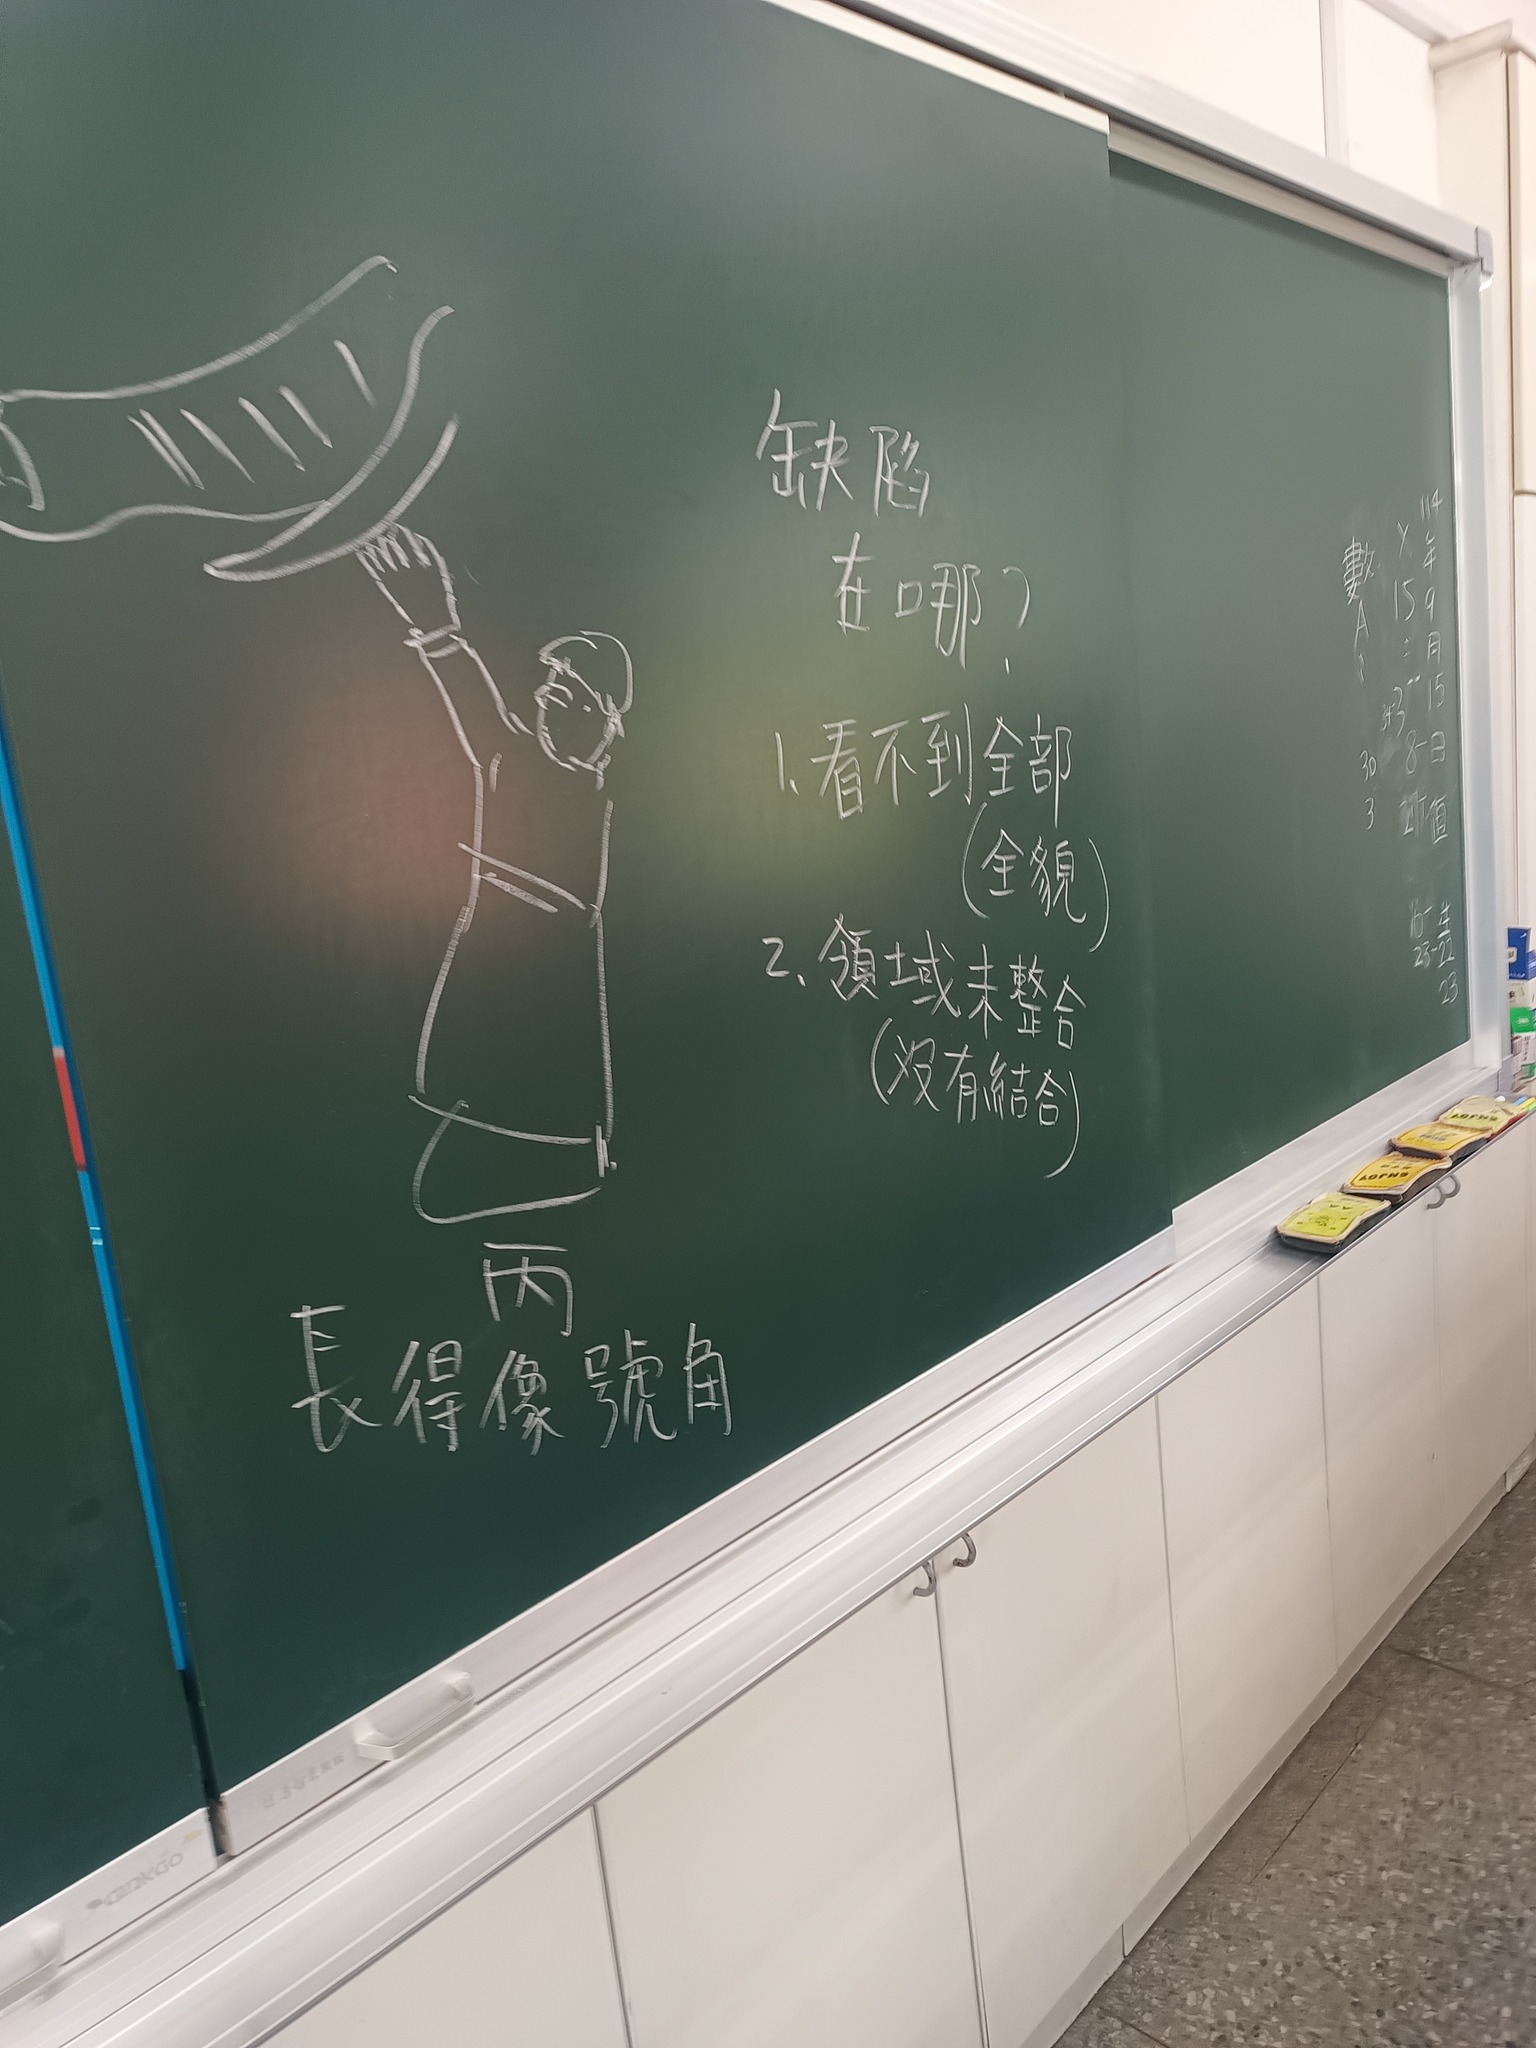 缺陷
在哪?
1.看不到全部
(全貌)
2.領域未整合
(沒有結合)
丙
長得像號角
114年9月15日
值
22
23
數A
30
3
GINKGO
ENJOY